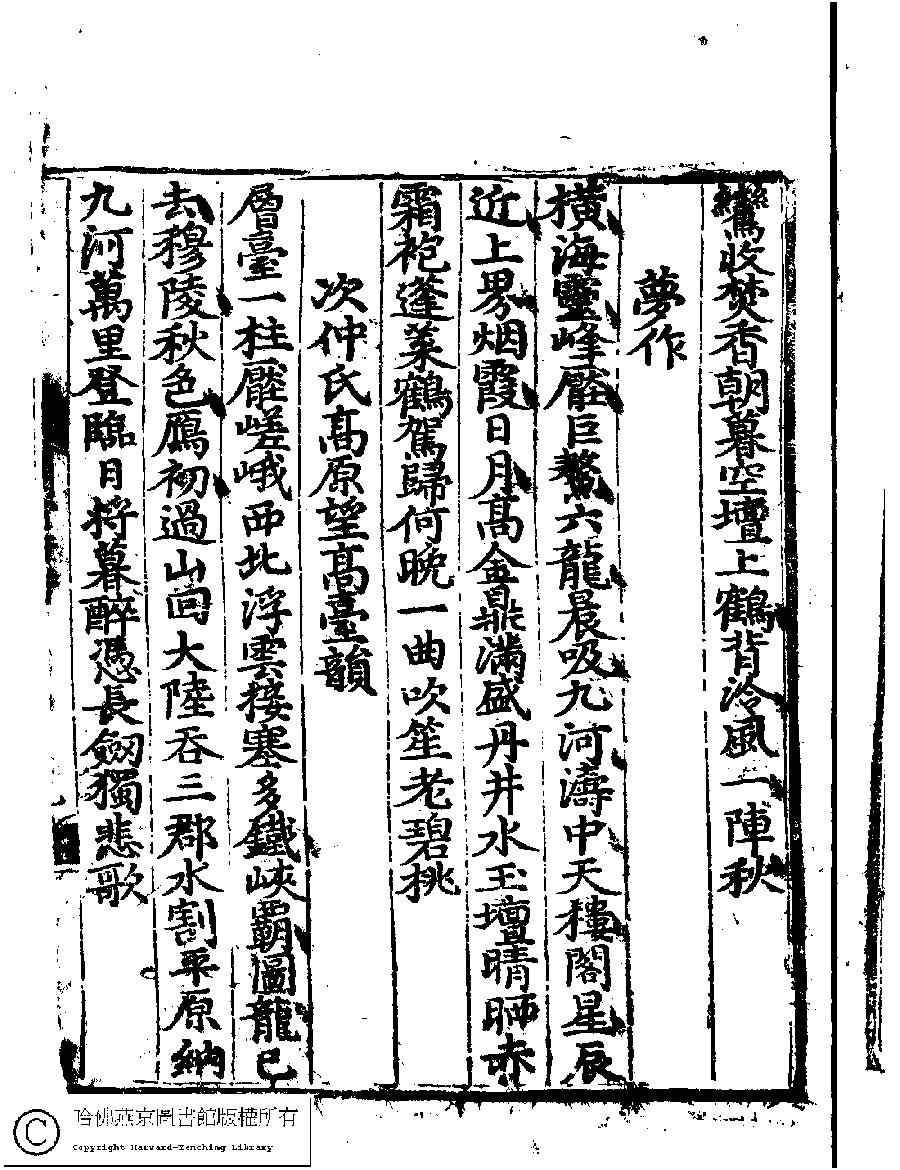 鸞收焚香朝暮空壇上鶴背冷風一陣秋
夢作
橫海靈峰壓巨鰲六龍晨吸九河濤中天樓閣星辰
近上界烟霞日月高金鼎滿盛丹井水玉壇晴晒赤
霜袍蓬萊鶴駕歸何晚一曲吹笙老碧桃
次仲氏高原望高臺韻
層臺一柱壓嵯峨西北浮雲接塞多鐵峽霸圖龍已
去穆陵秋色鴈初過山回大陸吞三郡水割平原納
九河萬里登臨日將暮醉憑長劒獨悲歌
哈佛燕京圖書館版權所有
Copyright Harvard-Yenching Library